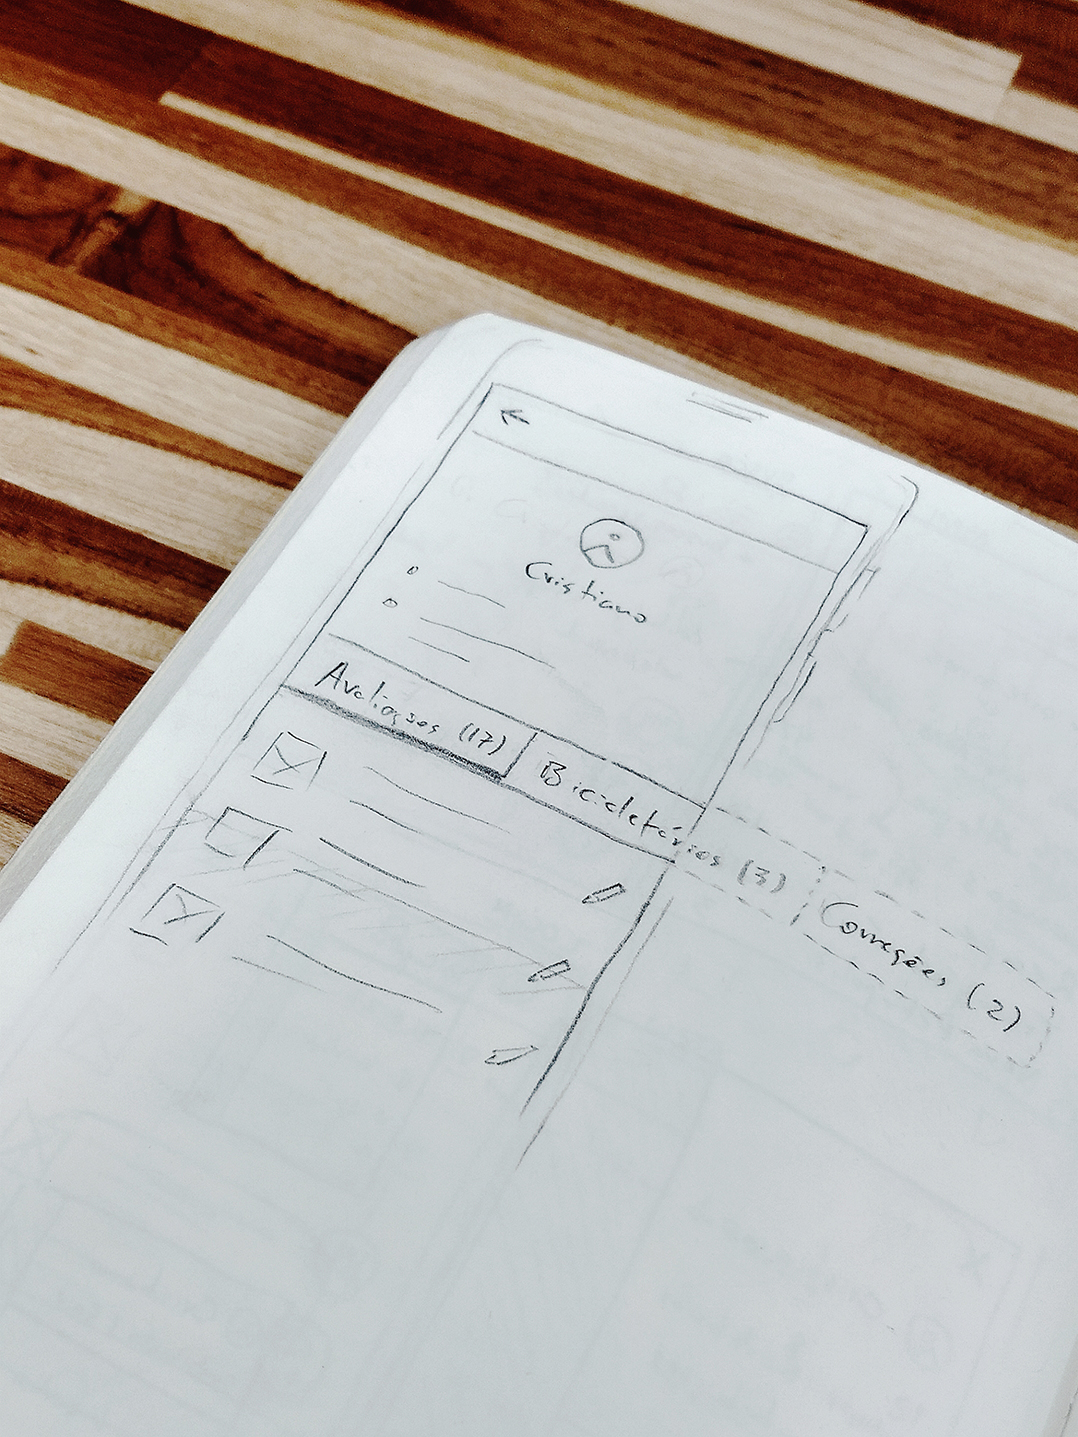 Cristiano
Avaliações (17) Bicicletários (3) Correções (2)